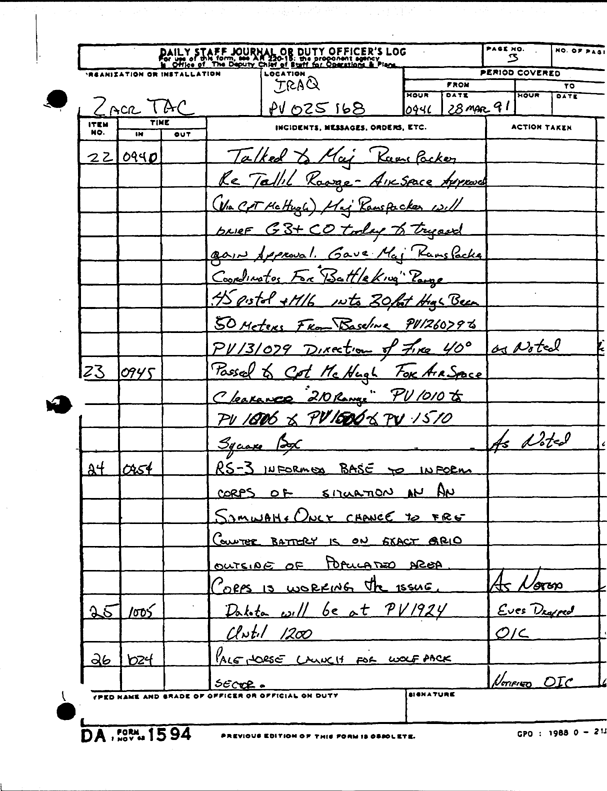 DAILY STAFF JOURNAL OR DUTY OFFICER'S LOG
For use of this form, see AR 220-15; the proponent agency
is Office of The Deputy Chief of Staff for Operations & Plans.
PAGE NO.
5
NO. OF PAG
RGANIZATION OR INSTALLATION
2 ACR TAC
LOCATION
IRAQ
PV 025168
PERIOD COVERED
FROM TO
HOUR DATE HOUR DATE
0946 28 MAR 91
ITEM NO. TIME INCIDENTS, MESSAGES, ORDERS, ETC. ACTION TAKEN
IN OUT
22 0940 Talked to Maj Ramspacker
Re Tallil Range - AirSpace Approval
(Via CPT McHugh) Maj Ramspacker will
brief G3 + CO today to try and
gain Approval. Gave Maj Ramspacke
Coordinates For "Battleking" Range
.45 pistol + M16 into 20 foot High Berm
50 Meters From Baseline PV126079 to
PV131079 Direction of Fire 40° as Noted
23 0945 Passed to Cpt McHugh For AirSpace
Clearance "210 Range" PV 1010 to
PV 1006 to to PV 1510
Square Box As Noted
24 0954 RS-3 INFORMED BASE TO INFORM
CORPS OF SITUATION AN AN
ONLY CHANCE TO FIRE
COUNTER BATTERY IS ON EXACT GRID
OUTSIDE OF POPULATED AREA.
CORPS IS WORKING the ISSUE. As Noted
25 1005 Dakota will be at PV1924 Eves Dropped
Until 1200 OIC
26 1024 PALEHORSE LAUNCH FOR WOLFPACK
SECTOR. Notified OIC
YPED NAME AND GRADE OF OFFICER OR OFFICIAL ON DUTY SIGNATURE
DA FORM 1594
1 NOV 62
PREVIOUS EDITION OF THIS FORM IS OBSOLETE.
GPO : 1988 0 - 21